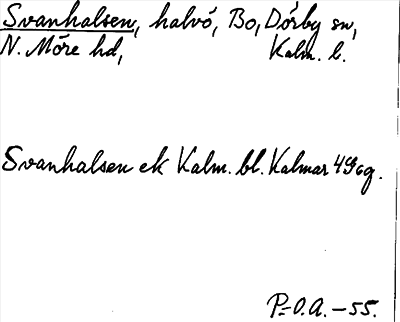 Svanhalsen, halvö, Bo, Dörby sn,
N. Möre hd, Kalm. l.
Svanhalsen ek Kalm. bl. Kalmar 4G6g.
P=O.A. -55.